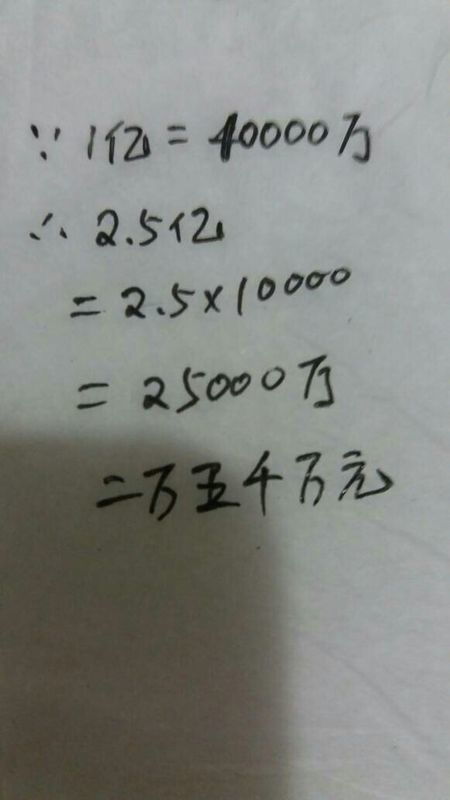 ∵ 1亿 = 10000万
∴ 2.5亿
= 2.5×10000
= 25000万
二万五千万元